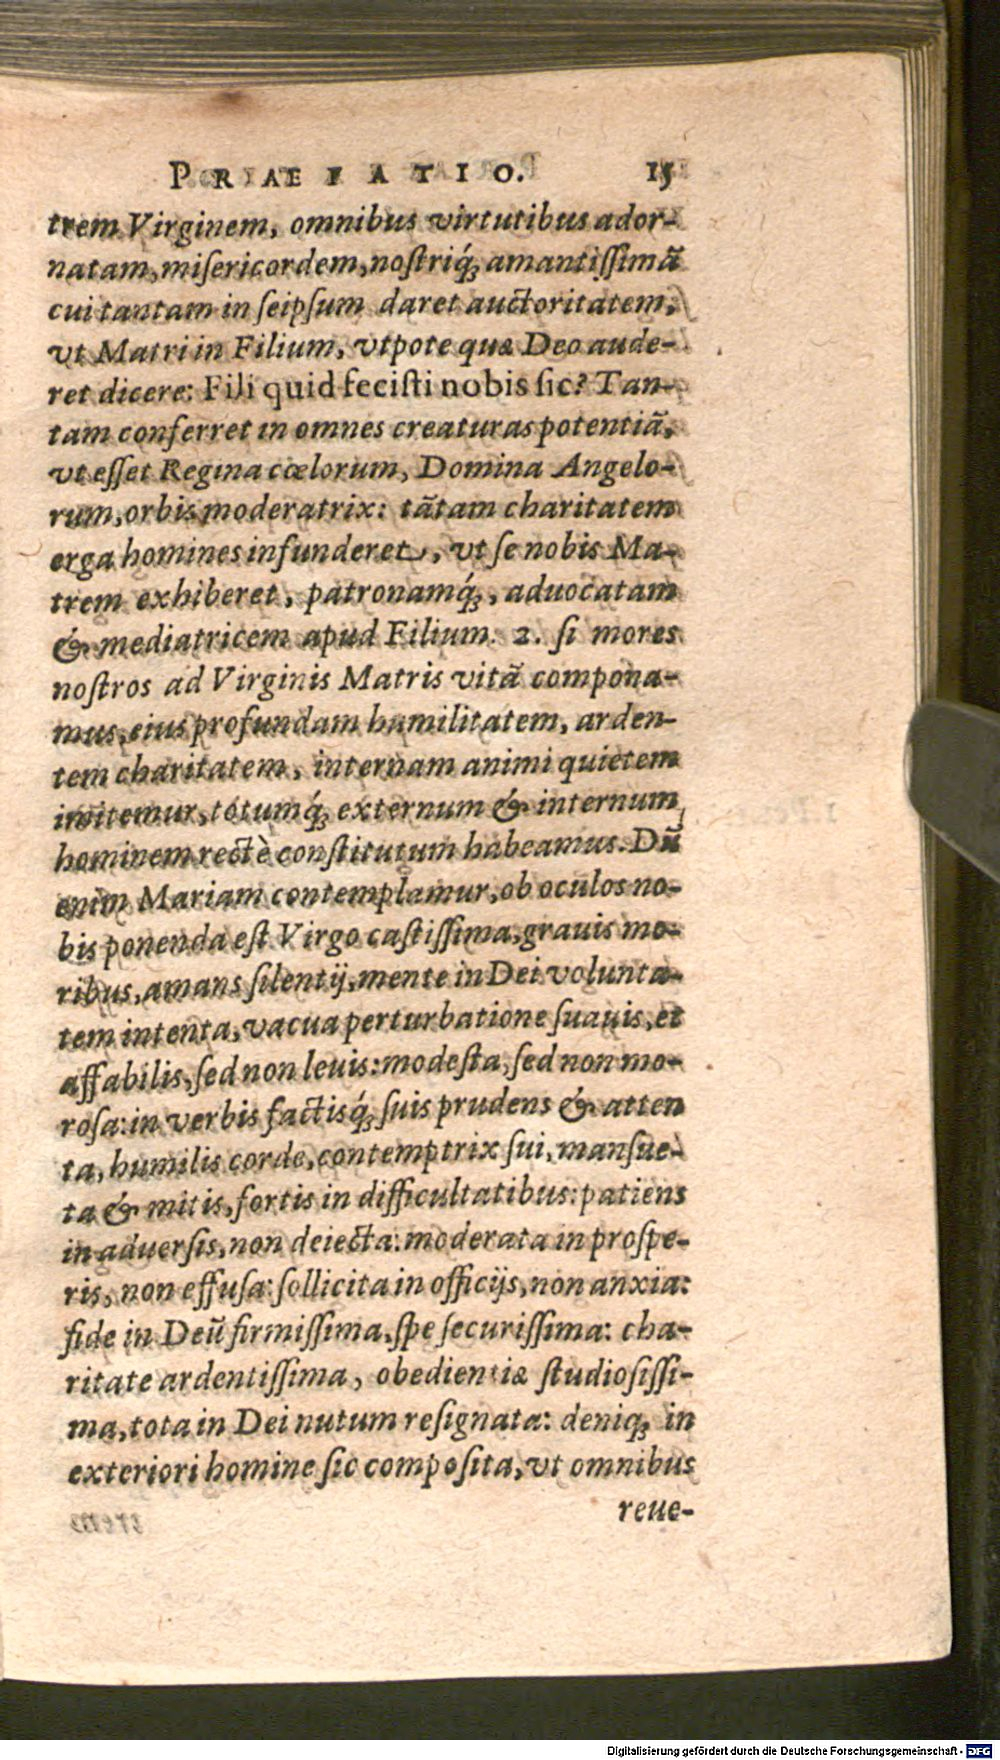 PRAEFATIO. 15
trem Virginem, omnibus virtutibus ador-
natam, miſericordem, noſtriq́ꝫ amantiſſimã
cui tantam in ſeipſum daret auctoritatem,
vt Matri in Filium, vtpote quæ Deo aude-
ret dicere: Fili quid feciſti nobis ſic? Tan-
tam conferret in omnes creaturas potentiã,
vt eſſet Regina cœlorum, Domina Angelo-
rum, orbis moderatrix: tãtam charitatem
erga homines infunderet, vt ſe nobis Ma-
trem exhiberet, patronamq́ꝫ, aduocatam
& mediatricem apud Filium. 2. ſi mores
noſtros ad Virginis Matris vitã compona-
mus, eius profundam humilitatem, arden-
tem charitatem, internam animi quietem
imitemur, totumq́ꝫ externum & internum
hominem rectè conſtitutum habeamus. Dũ
enim Mariam contemplamur, ob oculos no-
bis ponenda eſt Virgo caſtiſſima, grauis mo-
ribus, amans ſilentij, mente in Dei volunta-
tem intenta, vacua perturbatione ſuauis, et
affabilis, ſed non leuis: modeſta, ſed non mo-
roſa: in verbis factisq́ꝫ ſuis prudens & atten
ta, humilis corde, contemptrix ſui, manſue-
ta & mitis, fortis in difficultatibus: patiens
in aduerſis, non deiecta: moderata in proſpe-
ris, non effuſa: ſollicita in officijs, non anxia:
fide in Deũ firmiſſima, ſpe ſecuriſſima: cha-
ritate ardentiſſima, obedientiæ ſtudioſiſſi-
ma, tota in Dei nutum reſignata: deniqꝫ in
exteriori homine ſic compoſita, vt omnibus
reue-
Digitalisierung gefördert durch die Deutsche Forschungsgemeinschaft - DFG